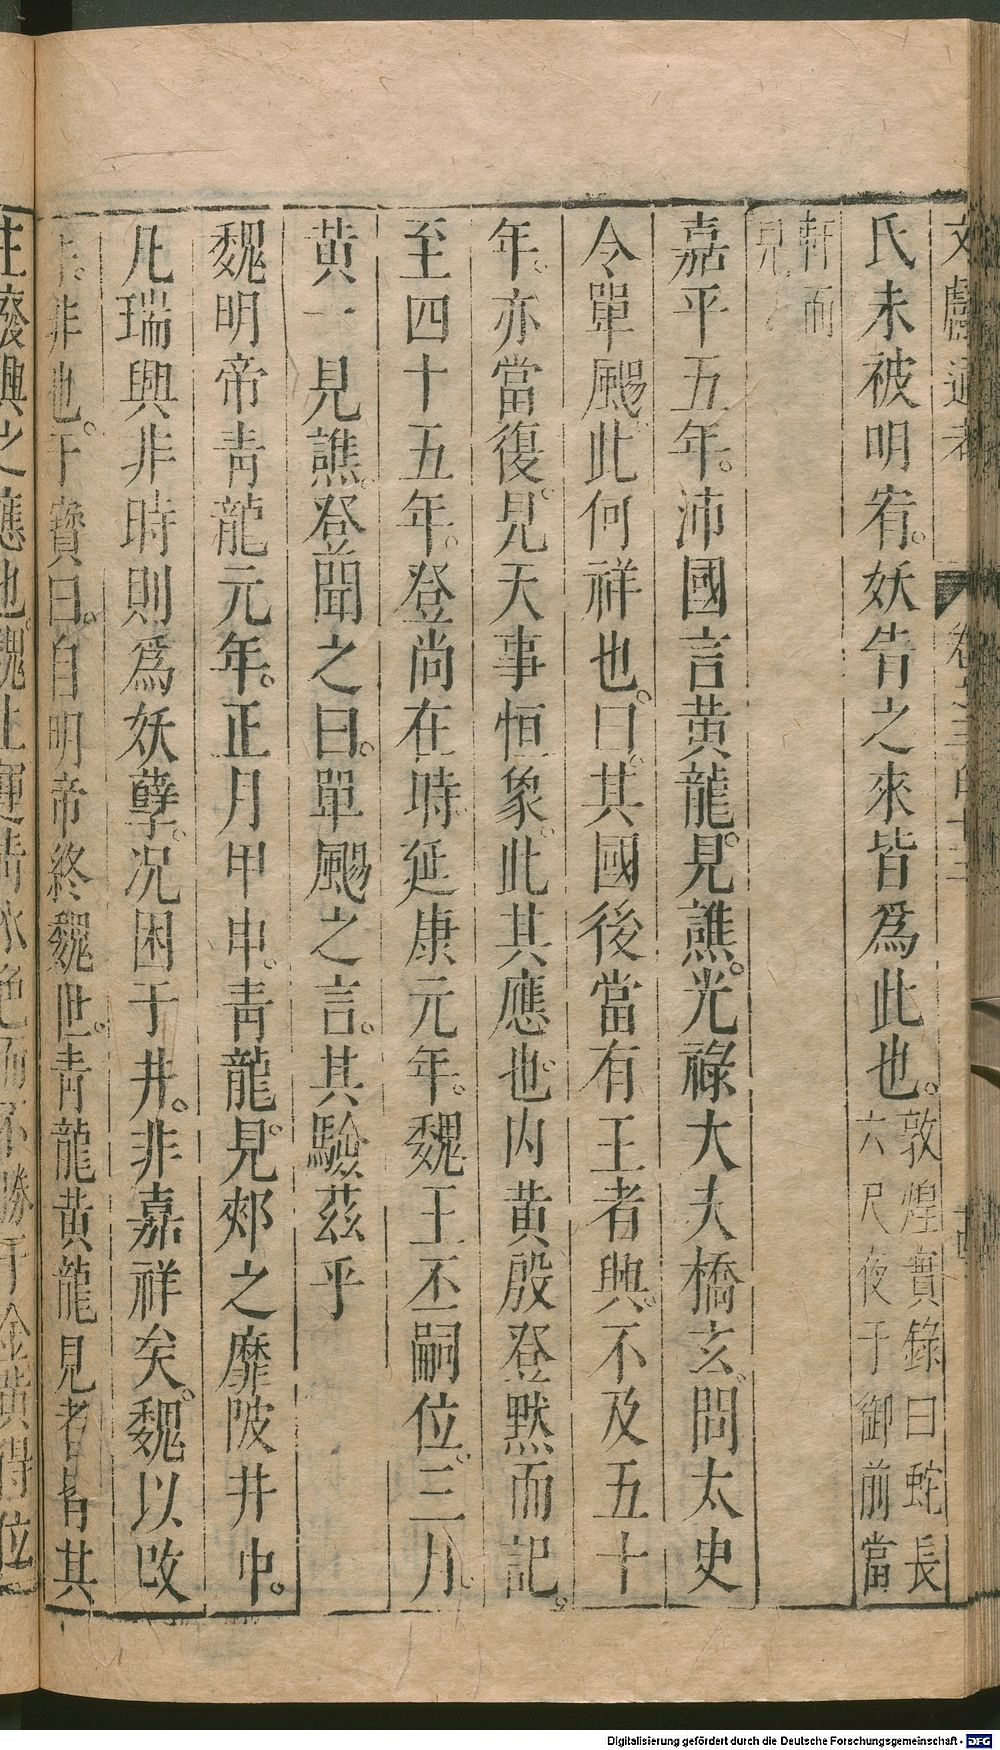 文獻通考 卷之三百十三 十四
氏未被明宥。妖眚之來皆爲此也。敦煌實錄曰蛇長六尺夜于御前當
軒而見
嘉平五年。沛國言黃龍見譙。光祿大夫橋玄問太史
令單颺。此何祥也。曰。其國後當有王者興。不及五十
年。亦當復見。天事恒象。此其應也。内黃殷登默而記。
至四十五年。登尚在時。延康元年。魏王丕嗣位。三月。
黃一見譙。登聞之曰。單颺之言。其驗茲乎
魏明帝青龍元年。正月甲申。青龍見郟之靡陂井中。
凡瑞興非時則爲妖孽。况困于井。非嘉祥矣。魏以改
非也。干寶曰。自明帝終魏世。青龍黃龍見者皆其
主廢興之應也。魏土運青木色而不勝于金黃得位
Digitalisierung gefördert durch die Deutsche Forschungsgemeinschaft - DFG